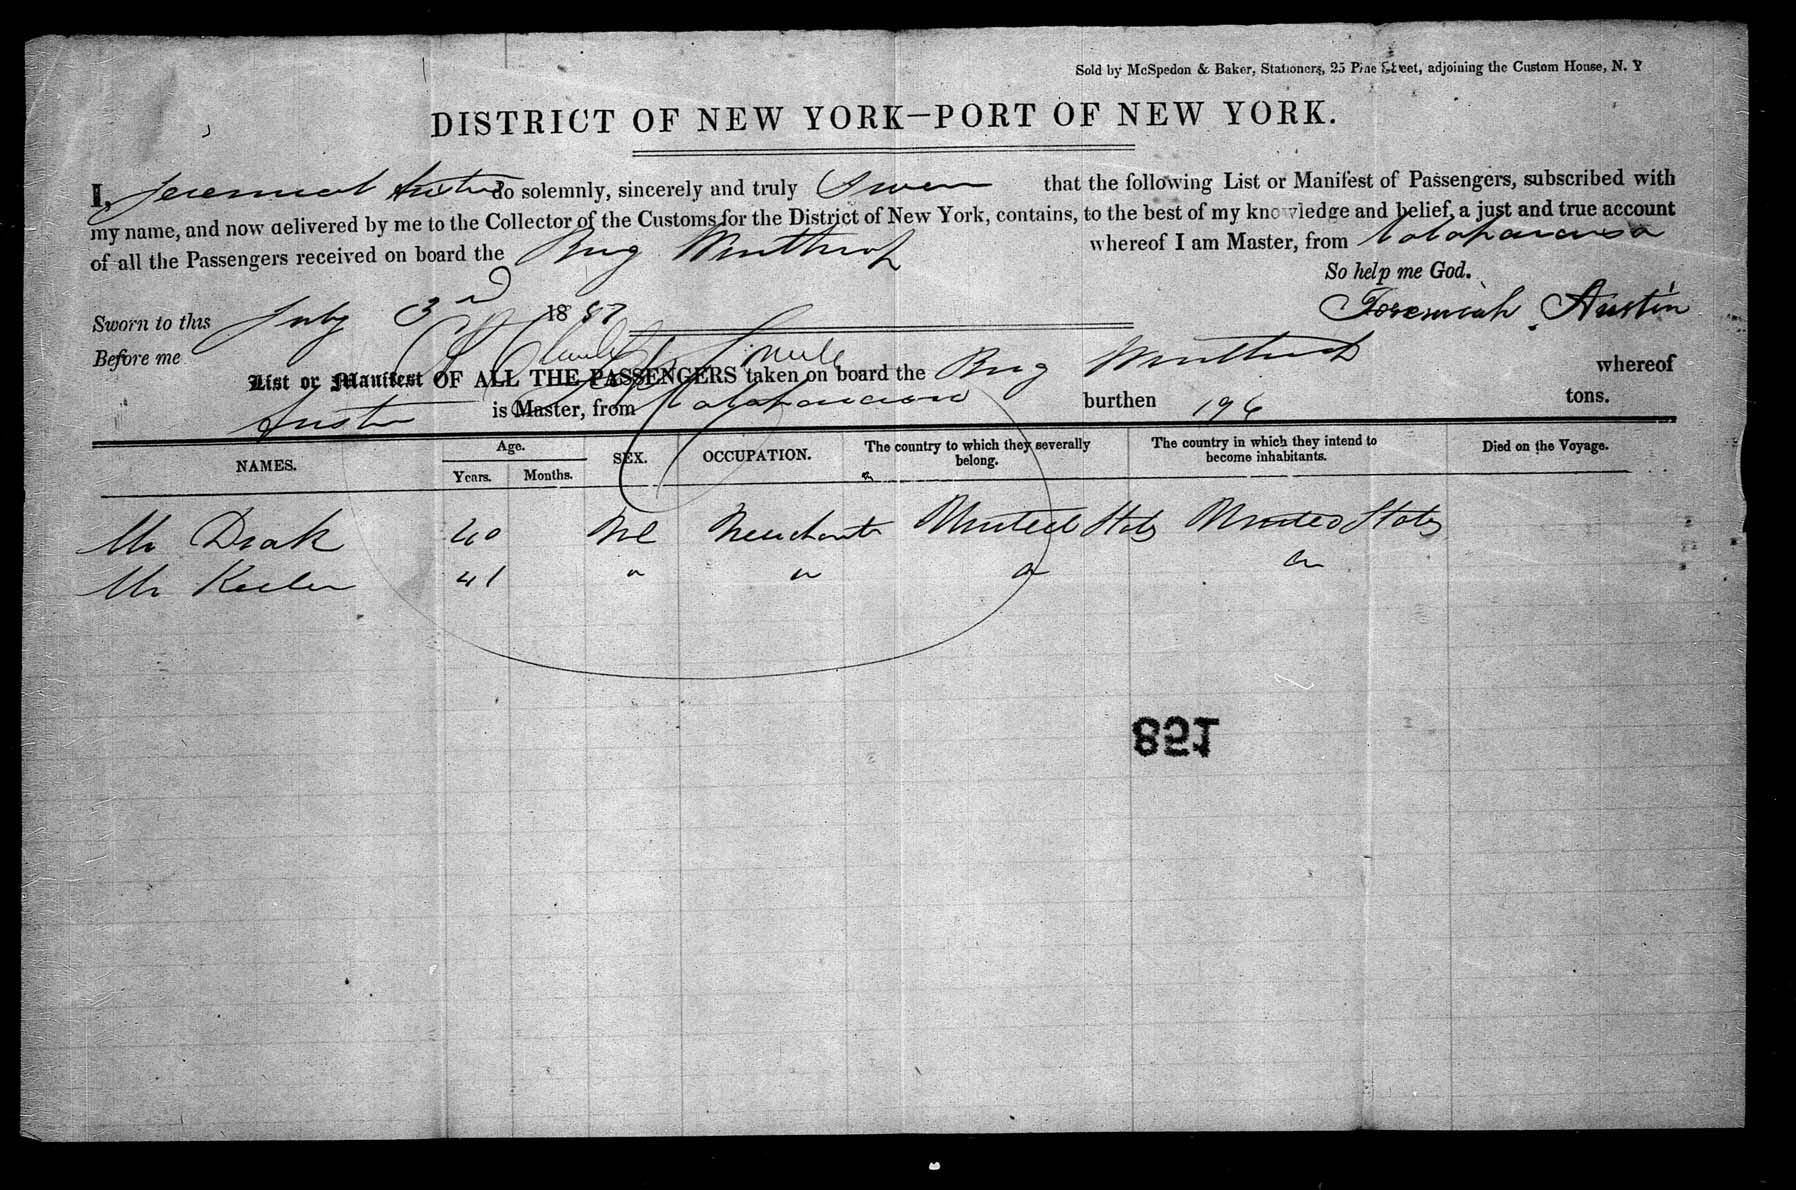 Sold by McSpedon & Baker, Stationers, 25 Pine Street, adjoining the Custom House, N. Y
DISTRICT OF NEW YORK—PORT OF NEW YORK.
I, Jeremiah Austin do solemnly, sincerely and truly Swear that the following List or Manifest of Passengers, subscribed with
my name, and now delivered by me to the Collector of the Customs for the District of New York, contains, to the best of my knowledge and belief, a just and true account
of all the Passengers received on board the Brig Winthrop whereof I am Master, from
So help me God.
Sworn to this July 3rd 1857 Jeremiah Austin
Before me
List or Manifest OF ALL THE PASSENGERS taken on board the Brig Winthrop whereof
Austin is Master, from burthen 196 tons.
NAMES. Age. Years. Months. SEX. OCCUPATION. The country to which they severally belong. The country in which they intend to become inhabitants. Died on the Voyage.
Mr Drak 40 Merchant United States United States
Mr Keeler 41 " " " "
851